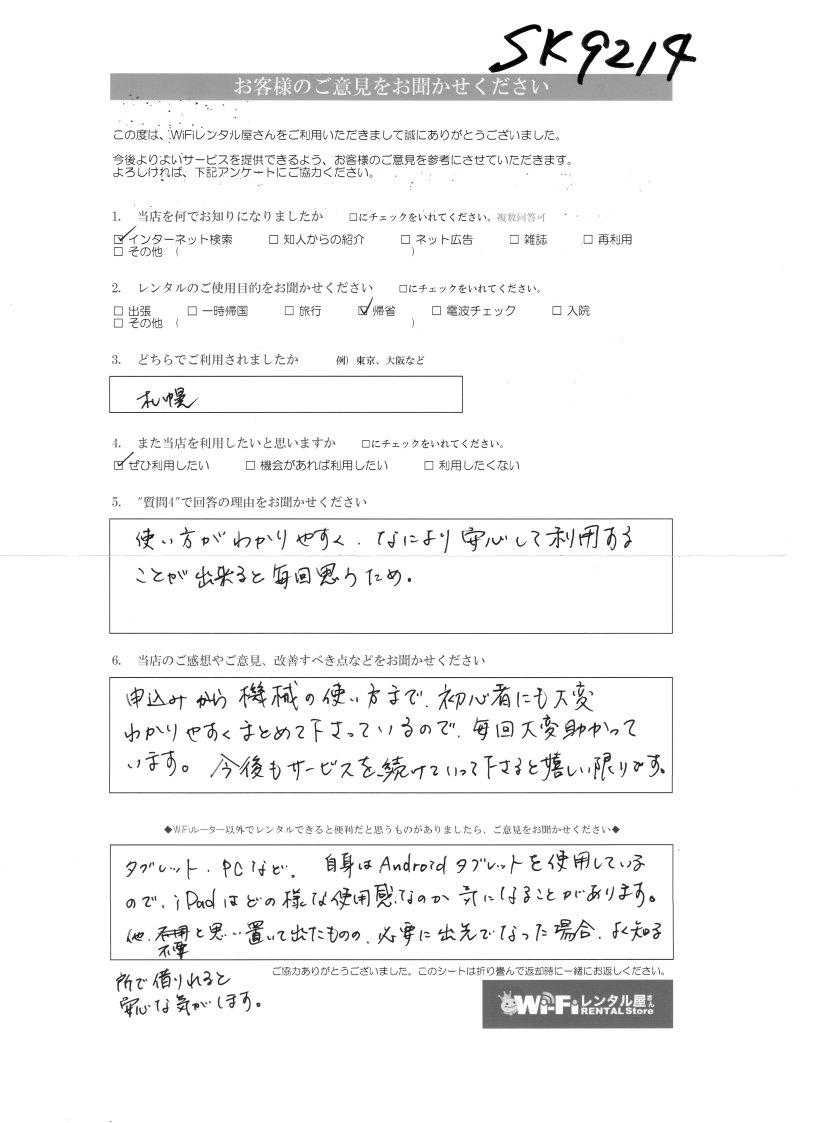 SK9214
お客様のご意見をお聞かせください
この度は、WiFiレンタル屋さんをご利用いただきまして誠にありがとうございました。
今後よりよいサービスを提供できるよう、お客様のご意見を参考にさせていただきます。
よろしければ、下記アンケートにご協力ください。
1. 当店を何でお知りになりましたか □にチェックをいれてください。複数回答可
☑インターネット検索 □ 知人からの紹介 □ ネット広告 □ 雑誌 □ 再利用
□ その他 ( )
2. レンタルのご使用目的をお聞かせください □にチェックをいれてください。
□ 出張 □ 一時帰国 □ 旅行 ☑帰省 □ 電波チェック □ 入院
□ その他 ( )
3. どちらでご利用されましたか 例）東京、大阪など
札幌
4. また当店を利用したいと思いますか □にチェックをいれてください。
☑ぜひ利用したい □ 機会があれば利用したい □ 利用したくない
5. "質問4"で回答の理由をお聞かせください
使い方がわかりやすく、なにより安心して利用する
ことが出来ると毎回思うため。
6. 当店のご感想やご意見、改善すべき点などをお聞かせください
申込みから機械の使い方まで、初心者にも大変
わかりやすくまとめて下さっているので、毎回大変助かって
います。今後もサービスを続けていって下さると嬉しい限りです。
◆WiFiルーター以外でレンタルできると便利だと思うものがありましたら、ご意見をお聞かせください◆
タブレット、PCなど。自身はAndroidタブレットを使用している
ので、iPadはどの様な使用感なのか気になることがあります。
他、不要と思い置いて出たものの、必要に出先でなった場合、よく知る
所で借りれると
安心な気がします。
ご協力ありがとうございました。このシートは折り畳んで返却時に一緒にお返しください。
Wi-Fiレンタル屋さん
RENTAL Store